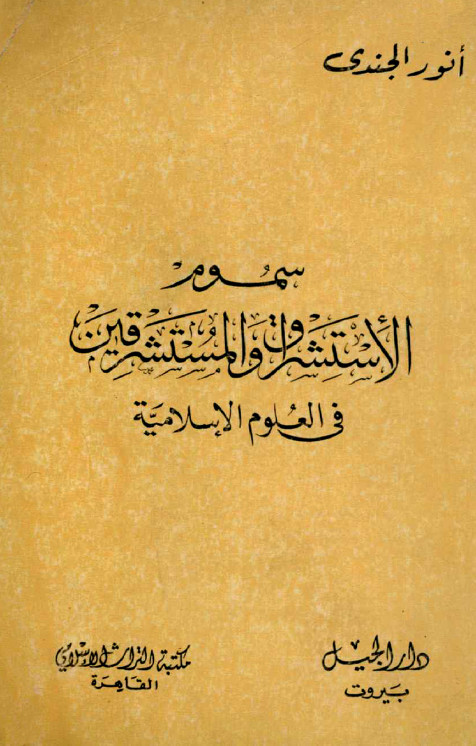 أنور الجندى
سموم
الأستشراق والمستشرقين
فى العلوم الإسلامية
دار الجيل
بيروت
مكتبة التراث الإسلامي
القاهرة